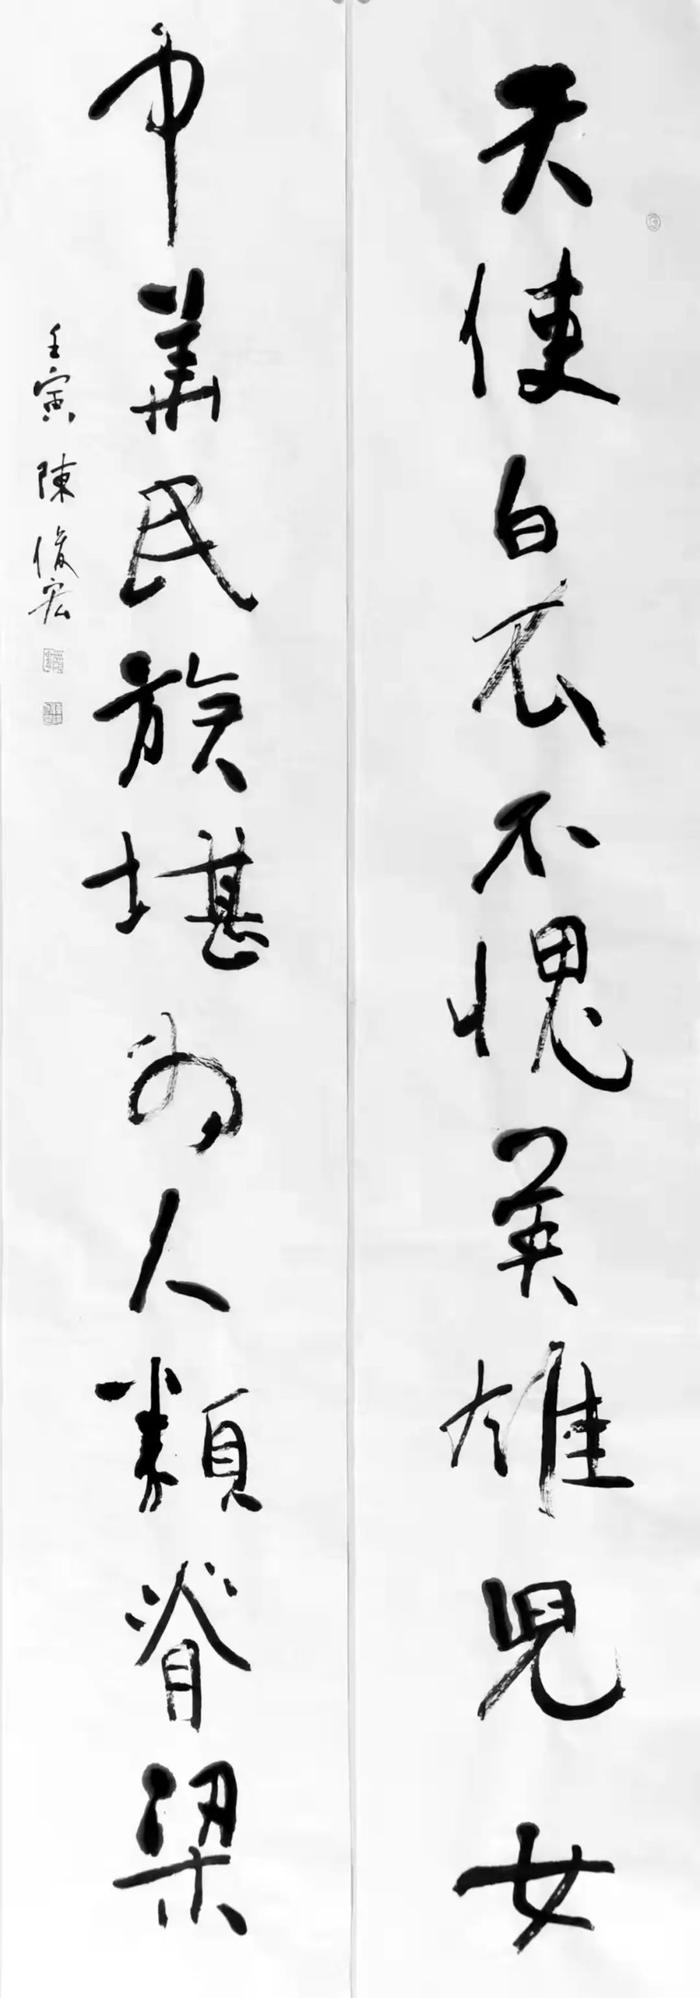 天使白衣不愧英雄兒女
中華民族堪为人類脊梁
壬寅 陳俊宏